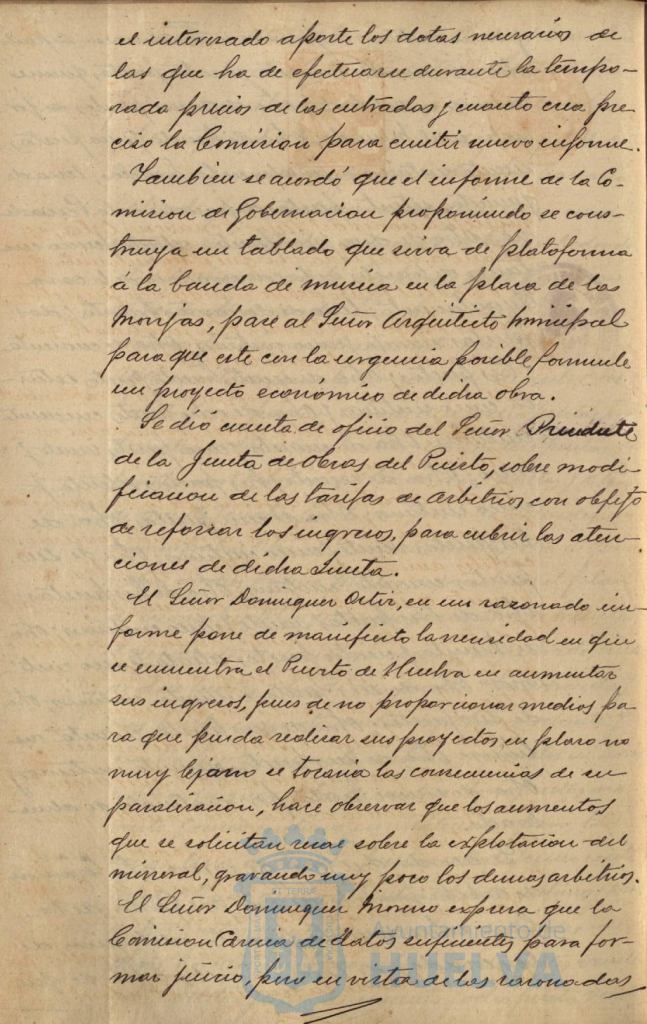 el interesado aporte los datos necesarios de
las que ha de efectuarse durante la tempo-
rada precios de las entradas y cuanto crea pre-
ciso la Comision para emitir nuevo informe.
Tambien se acordó que el informe de la Co-
mision de Gobernacion proponiendo se cons-
truya un tablado que sirva de plataforma
á la banda de musica en la plaza de las
Monjas, pase al Señor Arquitecto municipal
para que este con la urgencia posible formule
un proyecto económico de dicha obra.
Se dió cuenta de oficio del Señor Presidente
de la Junta de Obras del Puerto, sobre modi-
ficacion de las tarifas de arbitrios con objeto
de reforzar los ingresos, para cubrir las aten-
ciones de dicha Junta.
El Señor Dominguez Ortiz, en un razonado in-
forme pone de manifiesto la necesidad en que
se encuentra el Puerto de Huelva en aumentar
sus ingresos, pues de no proporcionar medios pa-
ra que pueda realizar sus proyectos en plazo no
muy lejano se tocaria las consecuencias de su
paralizacion, hace observar que los aumentos
que se solicitan recae sobre la explotacion del
mineral, gravando muy poco los demas arbitrios.
El Señor Dominguez Moreno expresa que la
Comision carecia de datos suficientes para for-
mar juicio, pero en vista de las razonadas
Ayuntamiento de
HUELVA